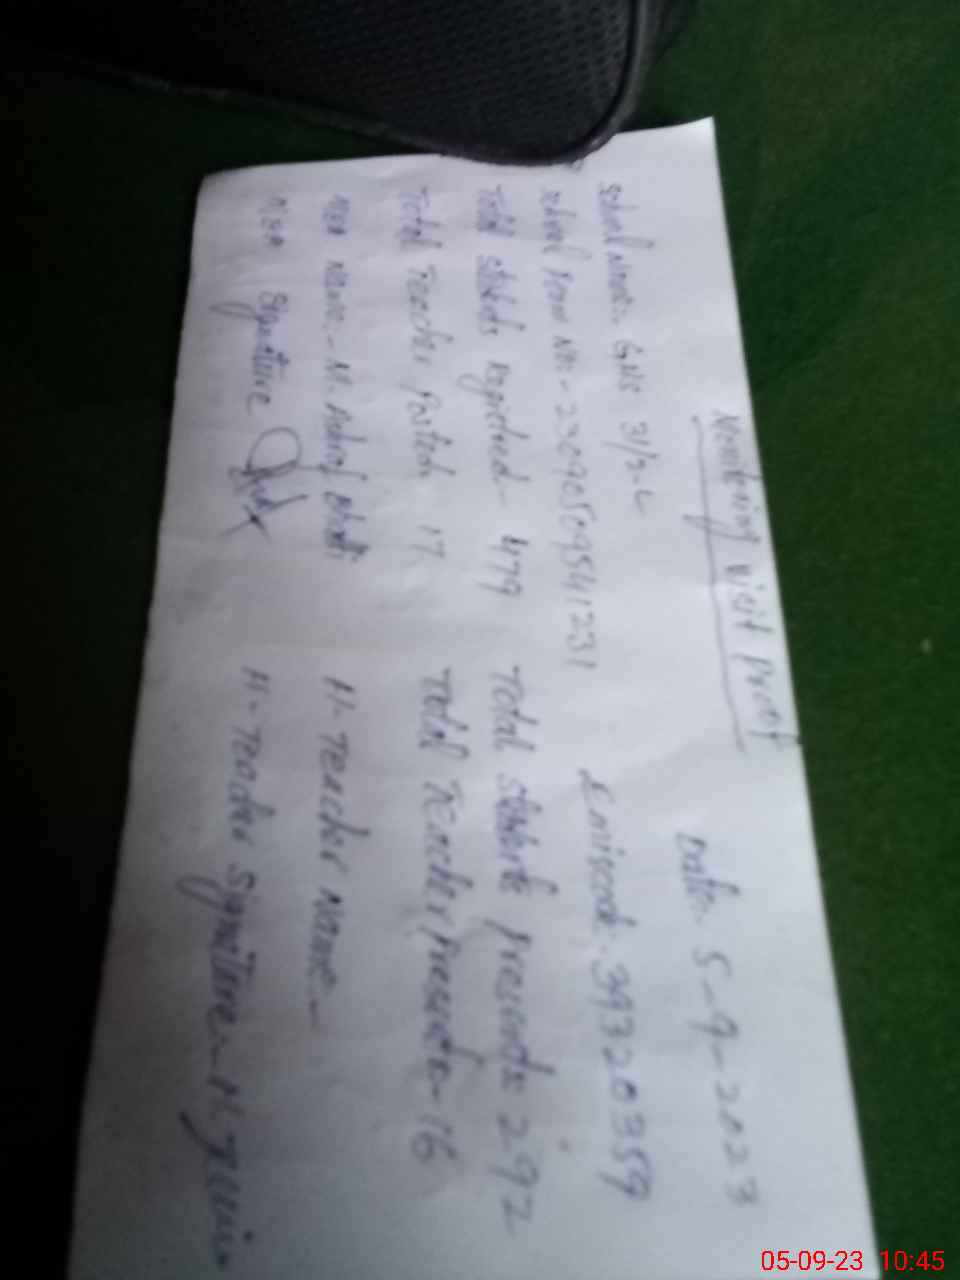 Monitoring visit Proof
Date:- 5-9-2023
School Name:- GHS 31/2-L
School Number:- 23090509541231 Emiscode:- 39320359
Total students Registered- 479 Total students Present:- 292
Total Teacher Posted:- 17 Total Teacher Present:- 16
MEA Name:- M. Ashraf Bhatti H-Teacher Name:-
MEA Signature H-Teacher Signature:- M.
05-09-23 10:45